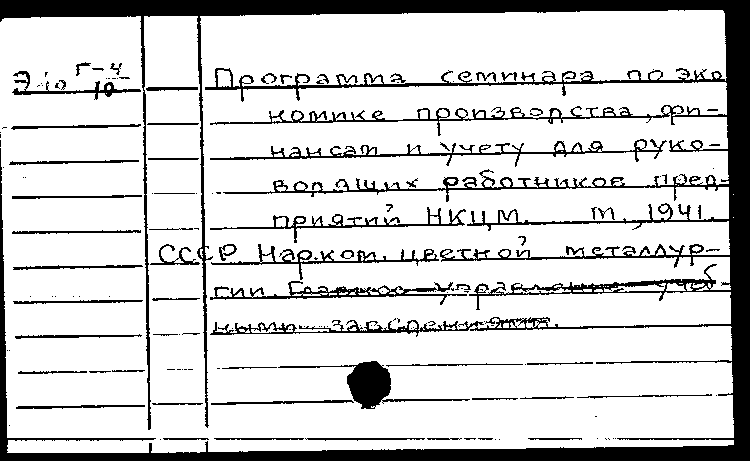 Э-10 Г-4/10
Программа семинара по эко
номике производства, фи-
нансам и учету для руко-
водящих работников пред-
приятий НКЦМ. М., 1941.
СССР Нар.ком. цветной металлур-
гии. Главное управление учеб
ными заведениями.